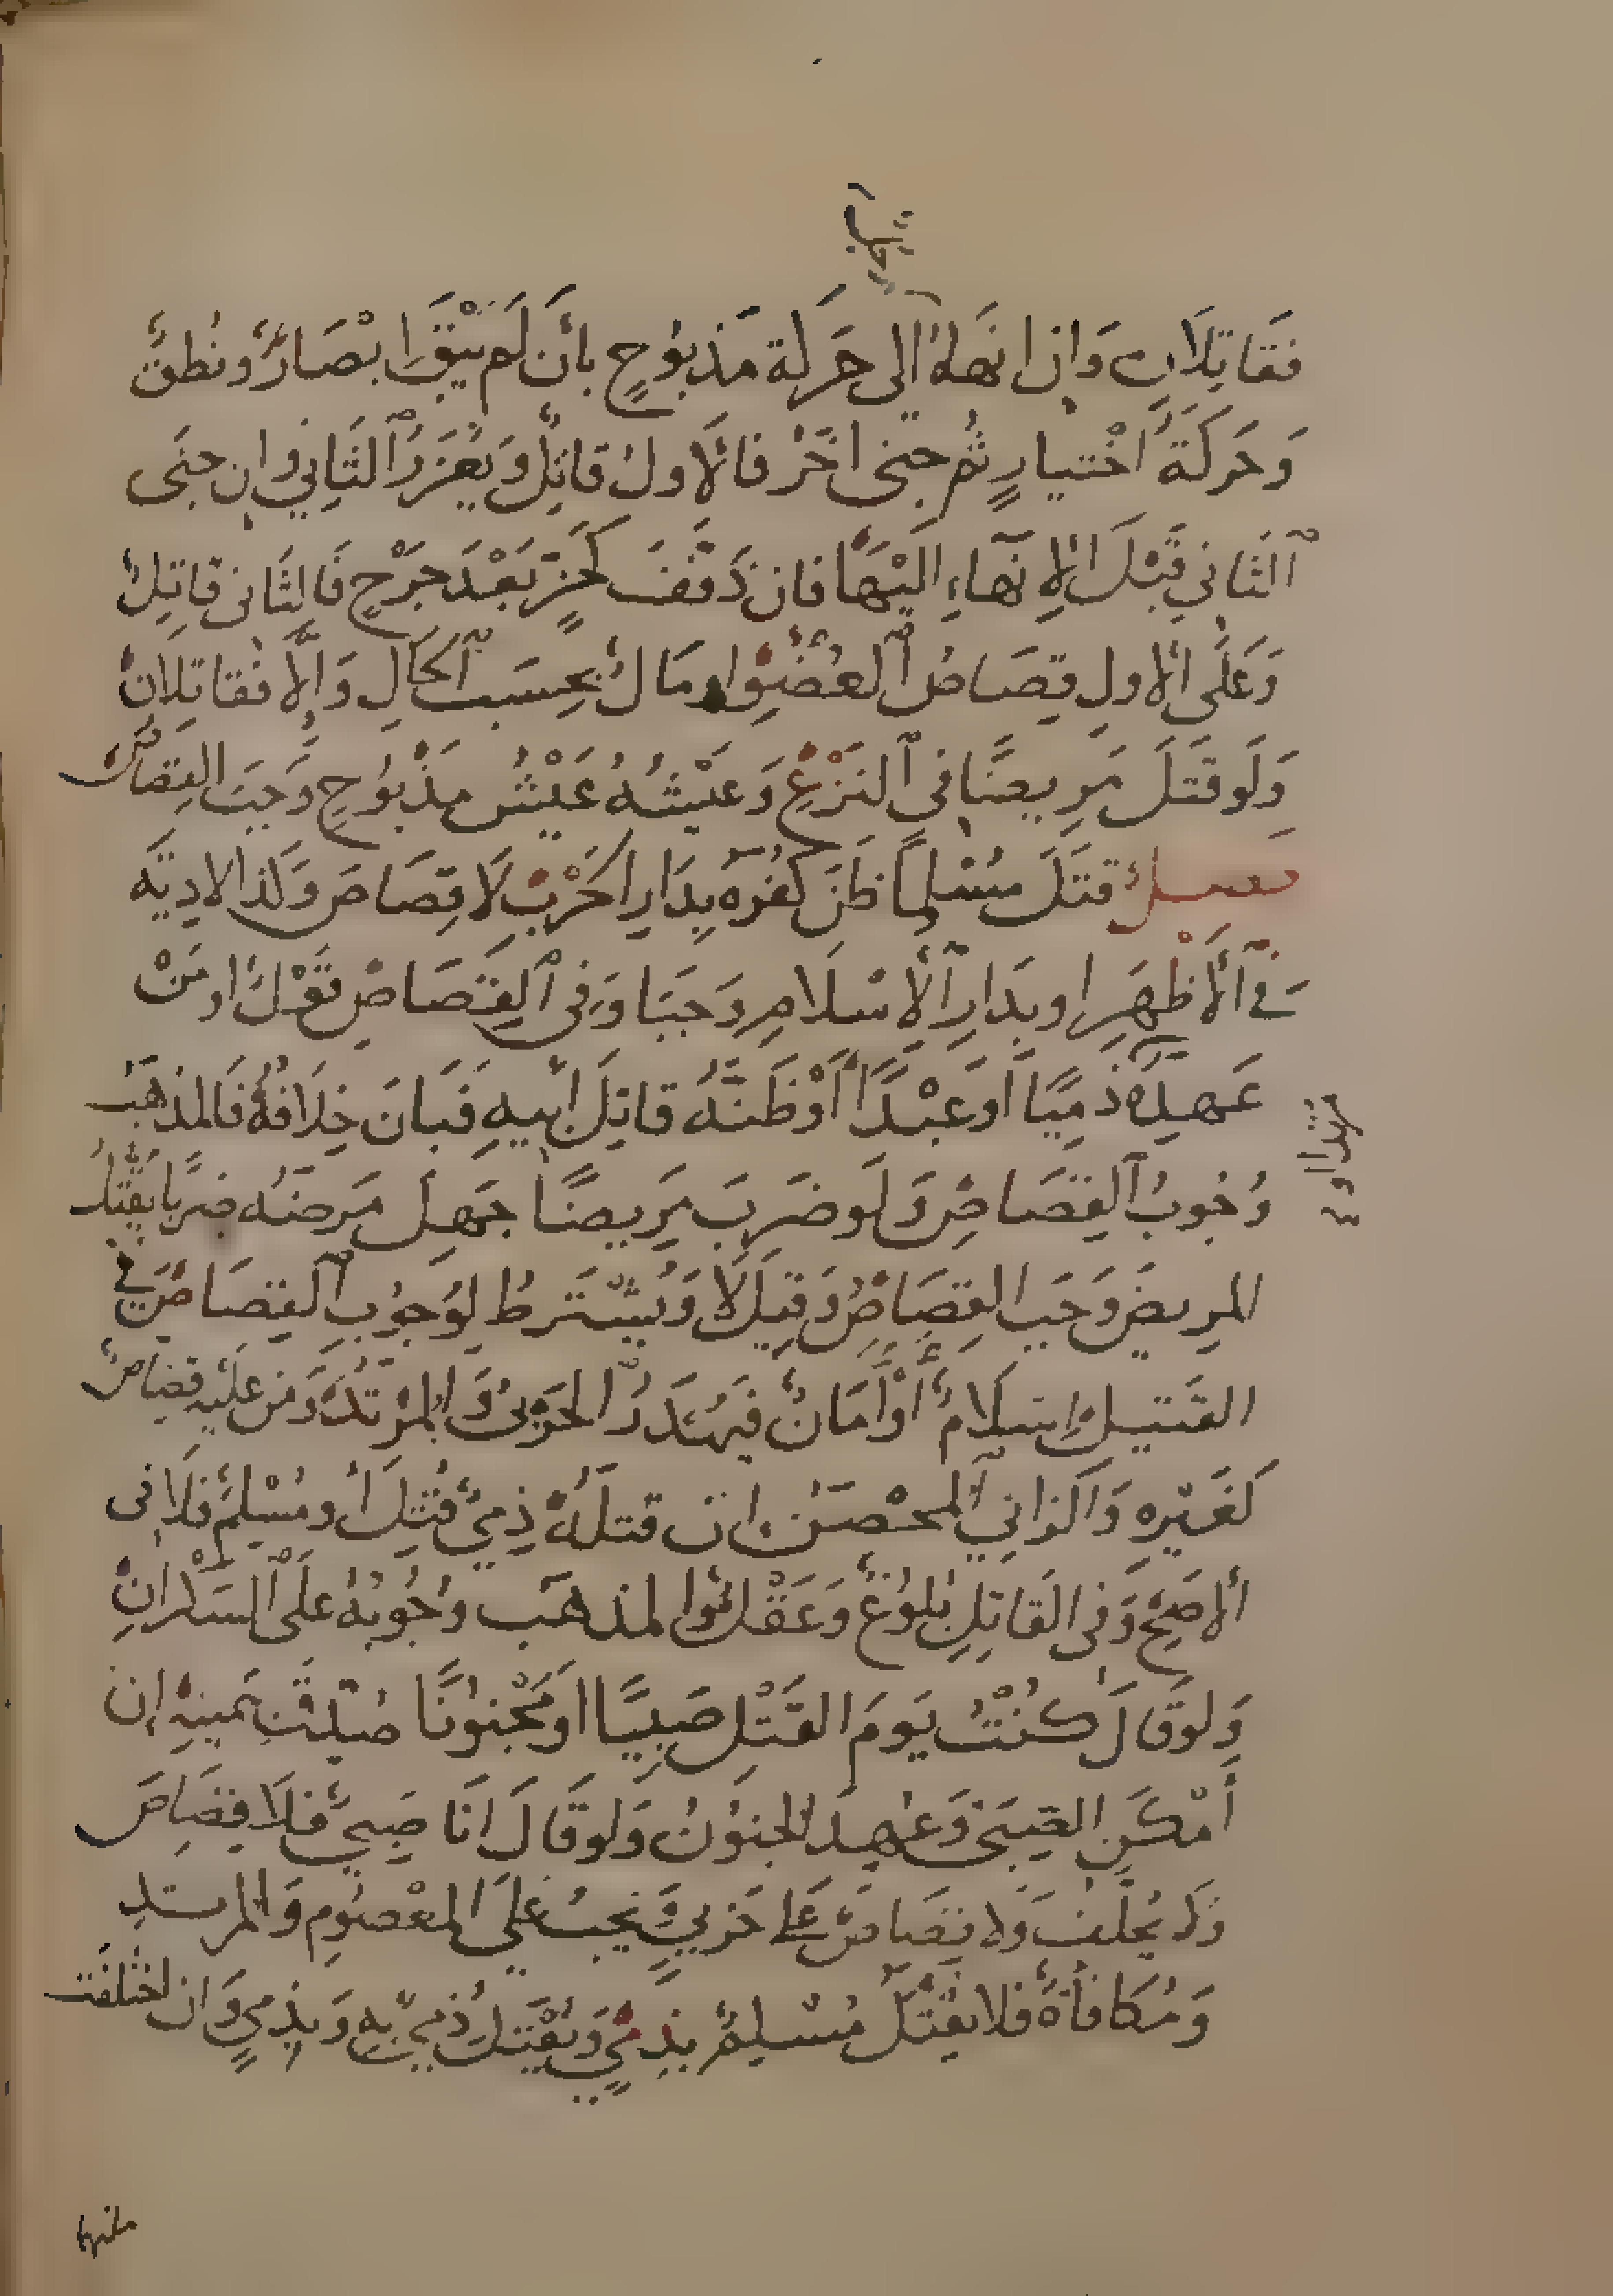 فَقَاتِلَانِ وَان انهاهُ الى حَرَكَة مَذبُوحٍ بأن لَم يَبْقَ ابْصَارٌ ونُطقٌ
وَحَركَةُ اخْتيارٍ ثُم جنى اخَرُ فالأول قاتِلٌ وَيُعَزرُ الثَانِي وان جنَى
الثاني قَبْلَ الإنهَاءِ اليْهَا فان ذَففَ كحَزٍّ بَعْدَ جَرْحٍ فَالثَاني قاتِلٌ
وَعَلَى الاولِ قِصَاصُ العُضْوِ اومَالٌ بحسَب الحَالِ وَإلا فقاتِلانِ
وَلَو قَتَلَ مَرِيضًا في النَزْعِ وَعَيْشُهُ عَيْشُ مذْبُوحٍ وَجَبَ القِصَاصُ
فصل قتَلَ مسْلِمًا ظَنَ كُفرَه بِدَارِ الحَرْبِ لَا قِصَاصَ وَكَذا لا دِيَّه
في الأظهَرِ اوبدَارِ الإسْلَامِ وَجَبَا وَفي القِصَاصِ قَوْلٌ اومَنْ
عَهِدَهُ ذمِيًا اوعَبْدًا أَوْظَنَهُ قاتِلَ أبيهِ فَبانَ خِلَافُهُ فَالمذهَبُ
وُجُوبُ القِصَاصِ وَلَو ضَرَبَ مَرِيضًا جَهِلَ مَرضَه ضربًا يقتُلُ
المرِيضَ وَجَبَ القِصَاصُ وَقِيلَ لَا وَيُشْتَرطُ لوُجُوبِ القِصَاصِ في
القَتيلِ إسلامٌ أَوْأَمَانٌ فيُهْدَرُ الحَرْبىُ وَالمرْتَدُ وَمَن عليه قصَاصٌ
كَغَيْرِهِ وَالزاني المحْصَنُ ان قتلَهُ ذِميٌ قُتِلَ اومُسْلِمٌ فلَا في
الأصَحِ وَفي القَاتِلِ بُلوُغٌ وَعَقْلٌ والمذهَب وُجُوبُهُ علَى السَكْرَانِ
وَلوقَالَ كنْتُ يَومَ القَتْلِ صَبِيًا اومَجْنُونًا صُدّقَ بيَمينِهِ إن
أمْكَنَ الصِبَى وَعُهِدَ الجنوُنُ وَلوقَالَ انَا صَبِيٌّ فلَا قِصَاصَ
وَلَا يُحَلَف وَلا قِصَاصَ على حَرْبِيٍ وَيَجبُ عَلَى المعْصُومِ وَالمرتدِ
وَمُكَافَأةٌ فلا يُقْتَلُ مُسْلِمٌ بذِمِّيٍ وَيُقْتَلُ ذِميٌّ بِهِ وَبِذِميٍ وَان اختلَفَت